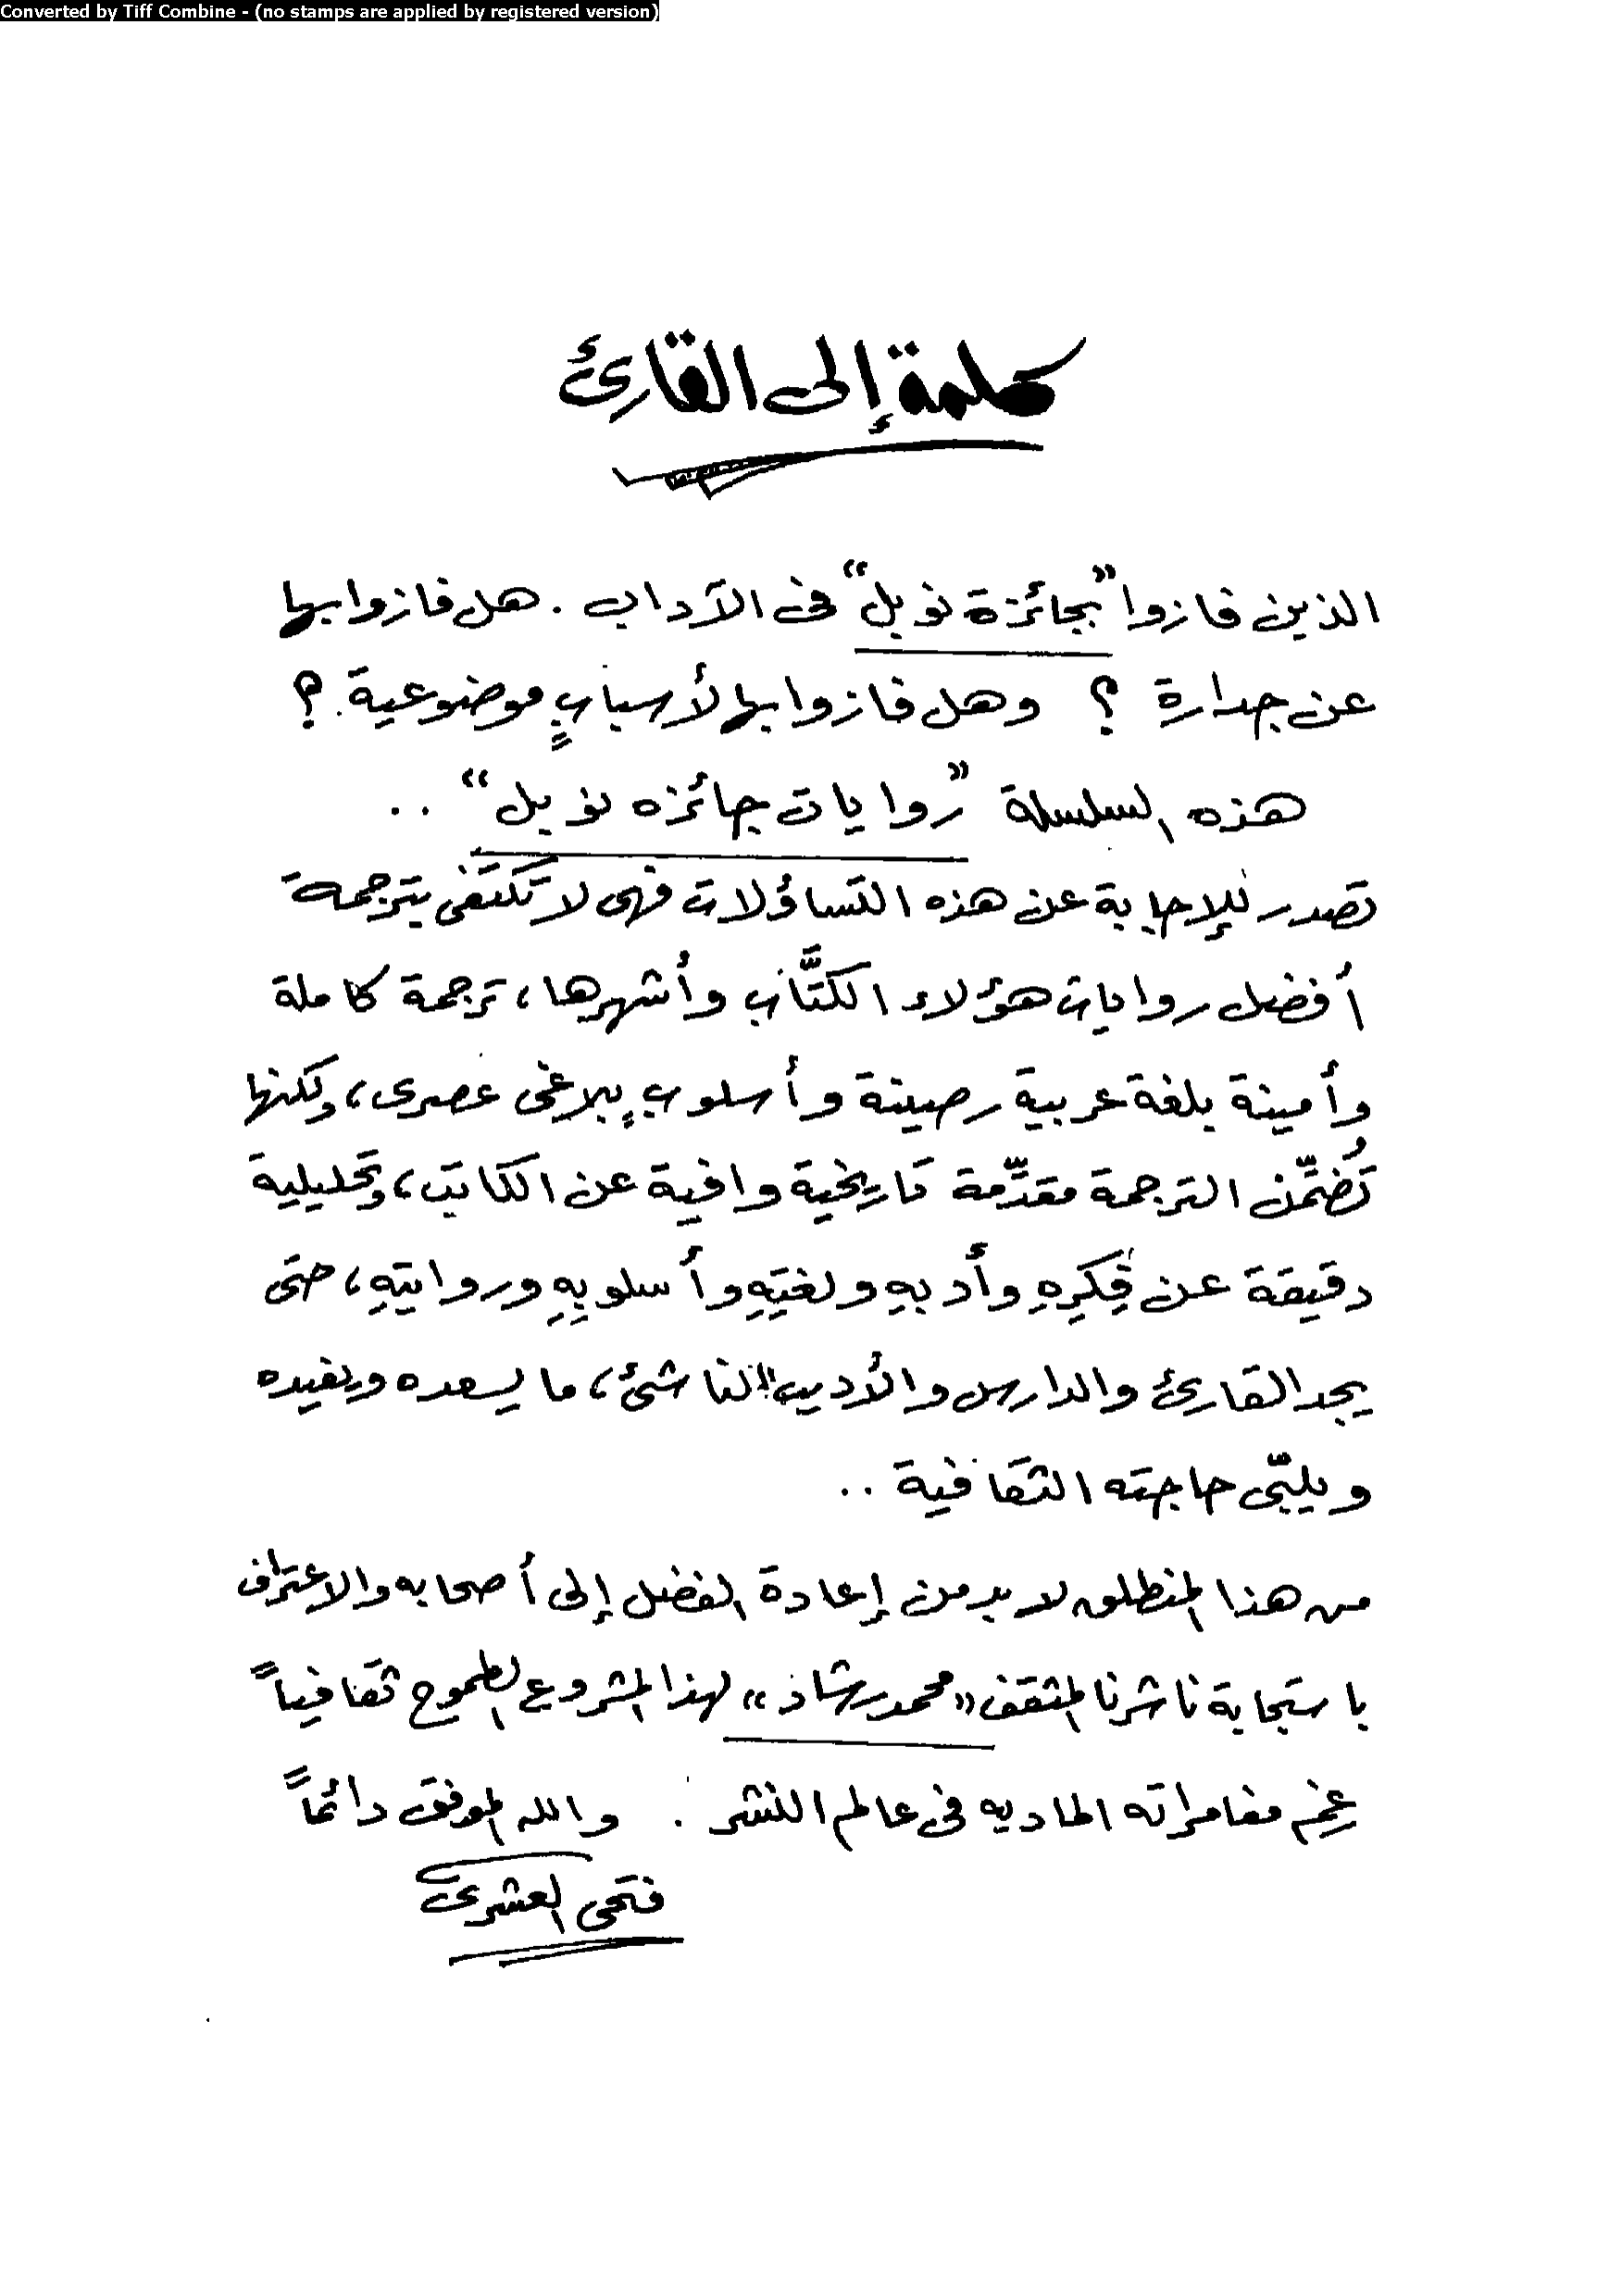 Converted by Tiff Combine - (no stamps are applied by registered version)
كلمة إلى القارئ
الذين فازوا "بجائزة نوبل" فى الآداب . هل فازوا بها
عن جدارة ؟ وهل فازوا بها لأسبابٍ موضوعية ؟
هذه السلسلة "روايات جائزه نوبل" ..
تصدر للإجابة عن هذه التساؤلات فهى لا تكتفى بترجمة
أفضل روايات هؤلاء الكتَّاب وأشهرها، ترجمة كاملة
وأمينة بلغة عربية رصينة وأسلوبٍ بلاغى عصرى، ولكنها
تُضمِّن الترجمة مقدِّمة تاريخية وافية عن الكاتب، وتحليلية
دقيقة عن فِكرِهِ وأدبهِ ولغتِهِ وأسلوبِهِ وروايتِهِ، حتى
يجد القارئ والدارس والأديب الناشئ، ما يسعده ويفيده
ويلبّى حاجته الثقافية ..
من هذا المنطلق لابد من إعادة الفضل إلى أصحابه والاعتراف
باستجابة ناشرنا المثقف «محمد رشاد» لهذا المشروع الطموح ثقافياً
رغم مغامراته الماديه فى عالم النشر . والله الموفق دائماً
فتحى العشرى